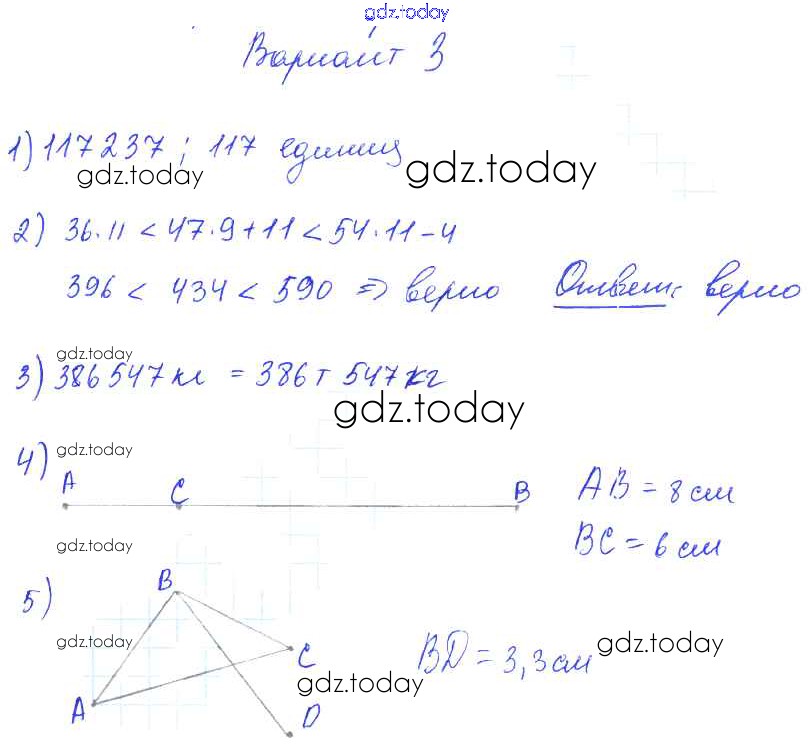 gdz.today
Вариант 3
1) 117237; 117 единиц
gdz.today gdz.today
2) 36·11 < 47·9+11 < 54·11-4
396 < 434 < 590 ⇒ верно Ответ: верно
gdz.today
3) 386547кг = 386т 547кг
gdz.today
4) gdz.today
A C B AB = 8 см
gdz.today BC = 6 см
5) B
gdz.today C BD = 3,3 см gdz.today
gdz.today
A D